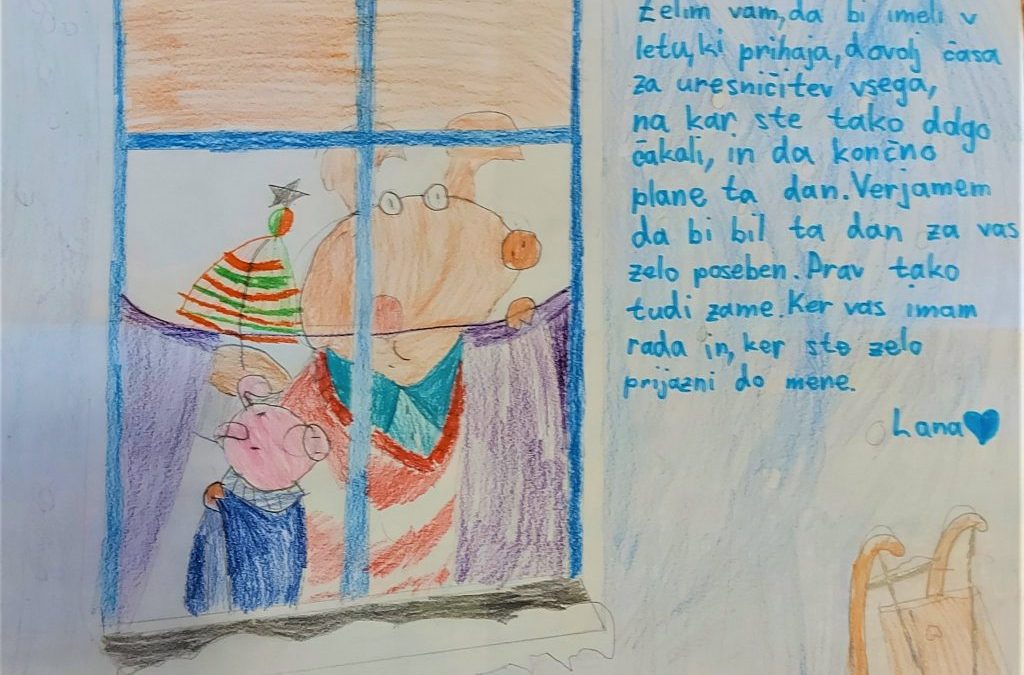 želim vam, da bi imeli v
letu, ki prihaja, dovolj časa
za uresničitev vsega,
na kar ste tako dolgo
čakali, in da končno
plane ta dan. Verjamem
da bi bil ta dan za vas
zelo poseben. Prav tako
tudi zame. Ker vas imam
rada in, ker ste zelo
prijazni do mene.
Lana